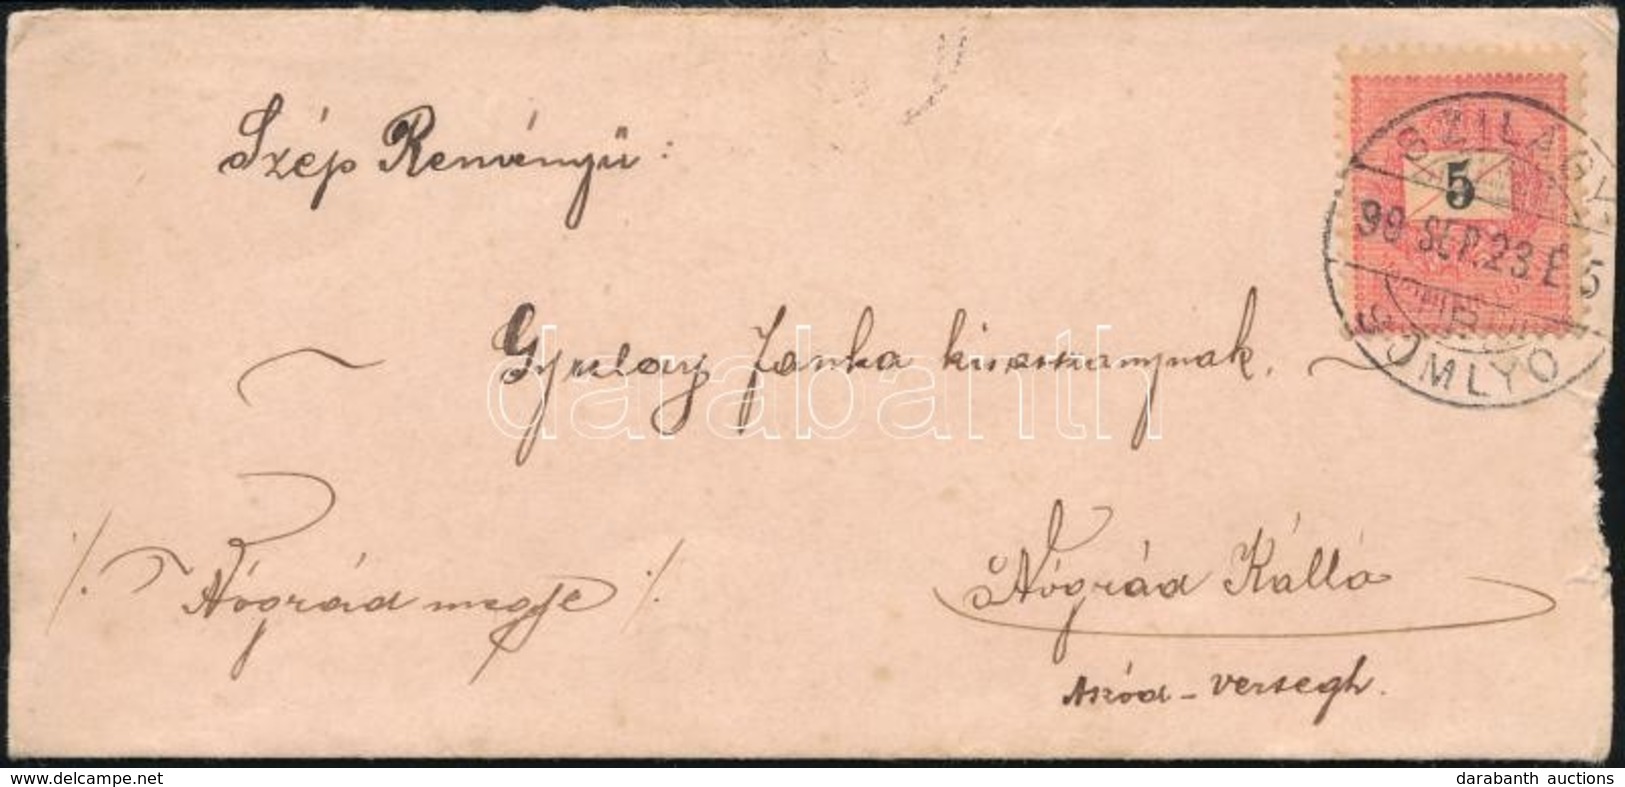 Szép Reményű:
5
SZILÁGY
98 SEP. 23 É 5
SOMLYO
Gyulay Janka kisasszonynak.
darabanth
Nógrád megye
Nógrád Kálló
Aszód - Versegh.
www.delcampe.net
darabanth auctions